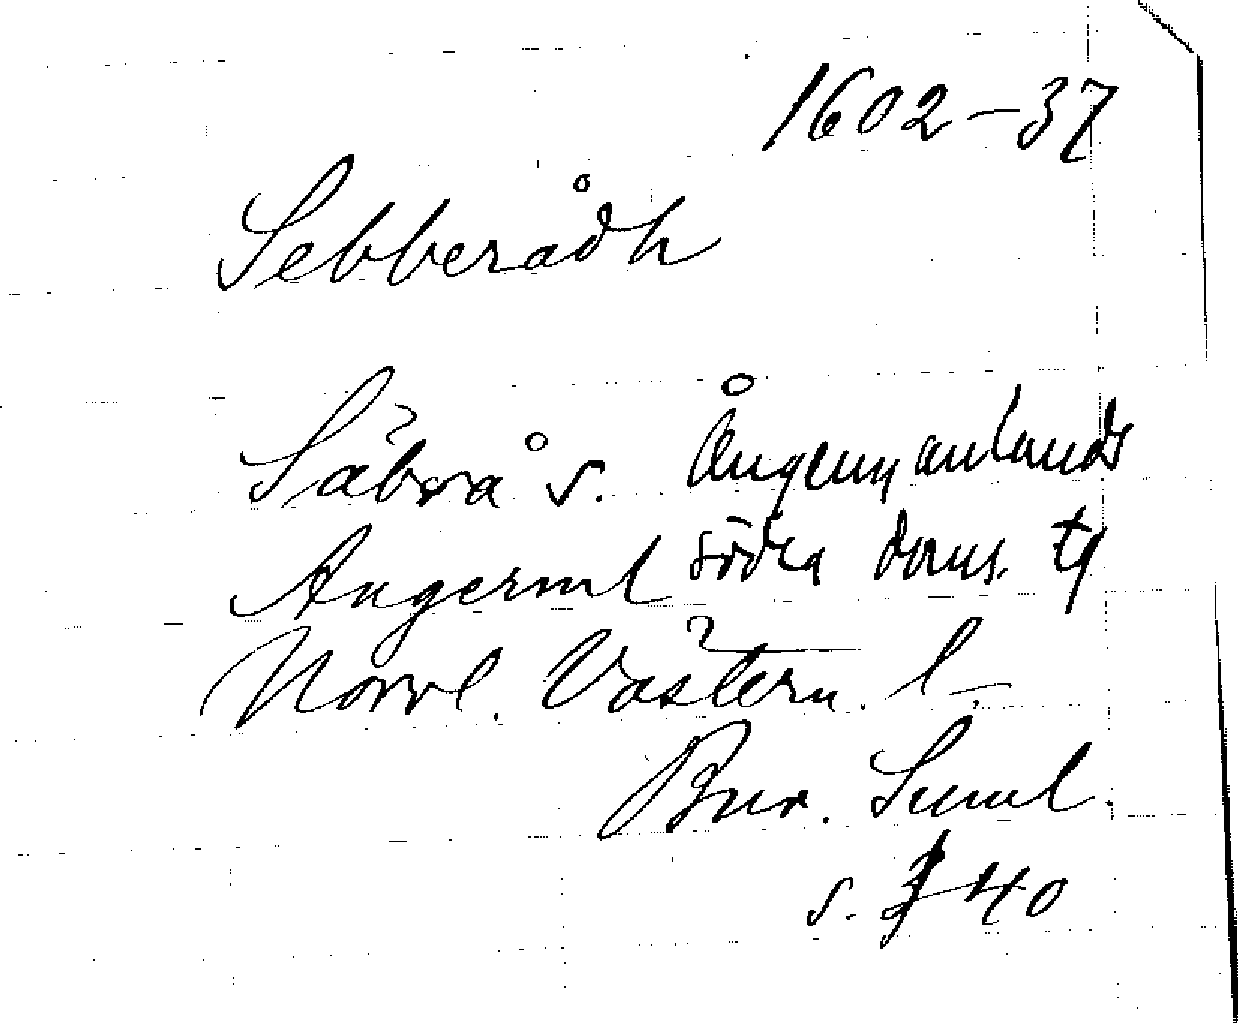 1602-37
Sebberådh
Säbrå s. Ångermanlands
Ångerml södra doms. tg
Norrl. Västern. l
Bur. Suml.
s. 40